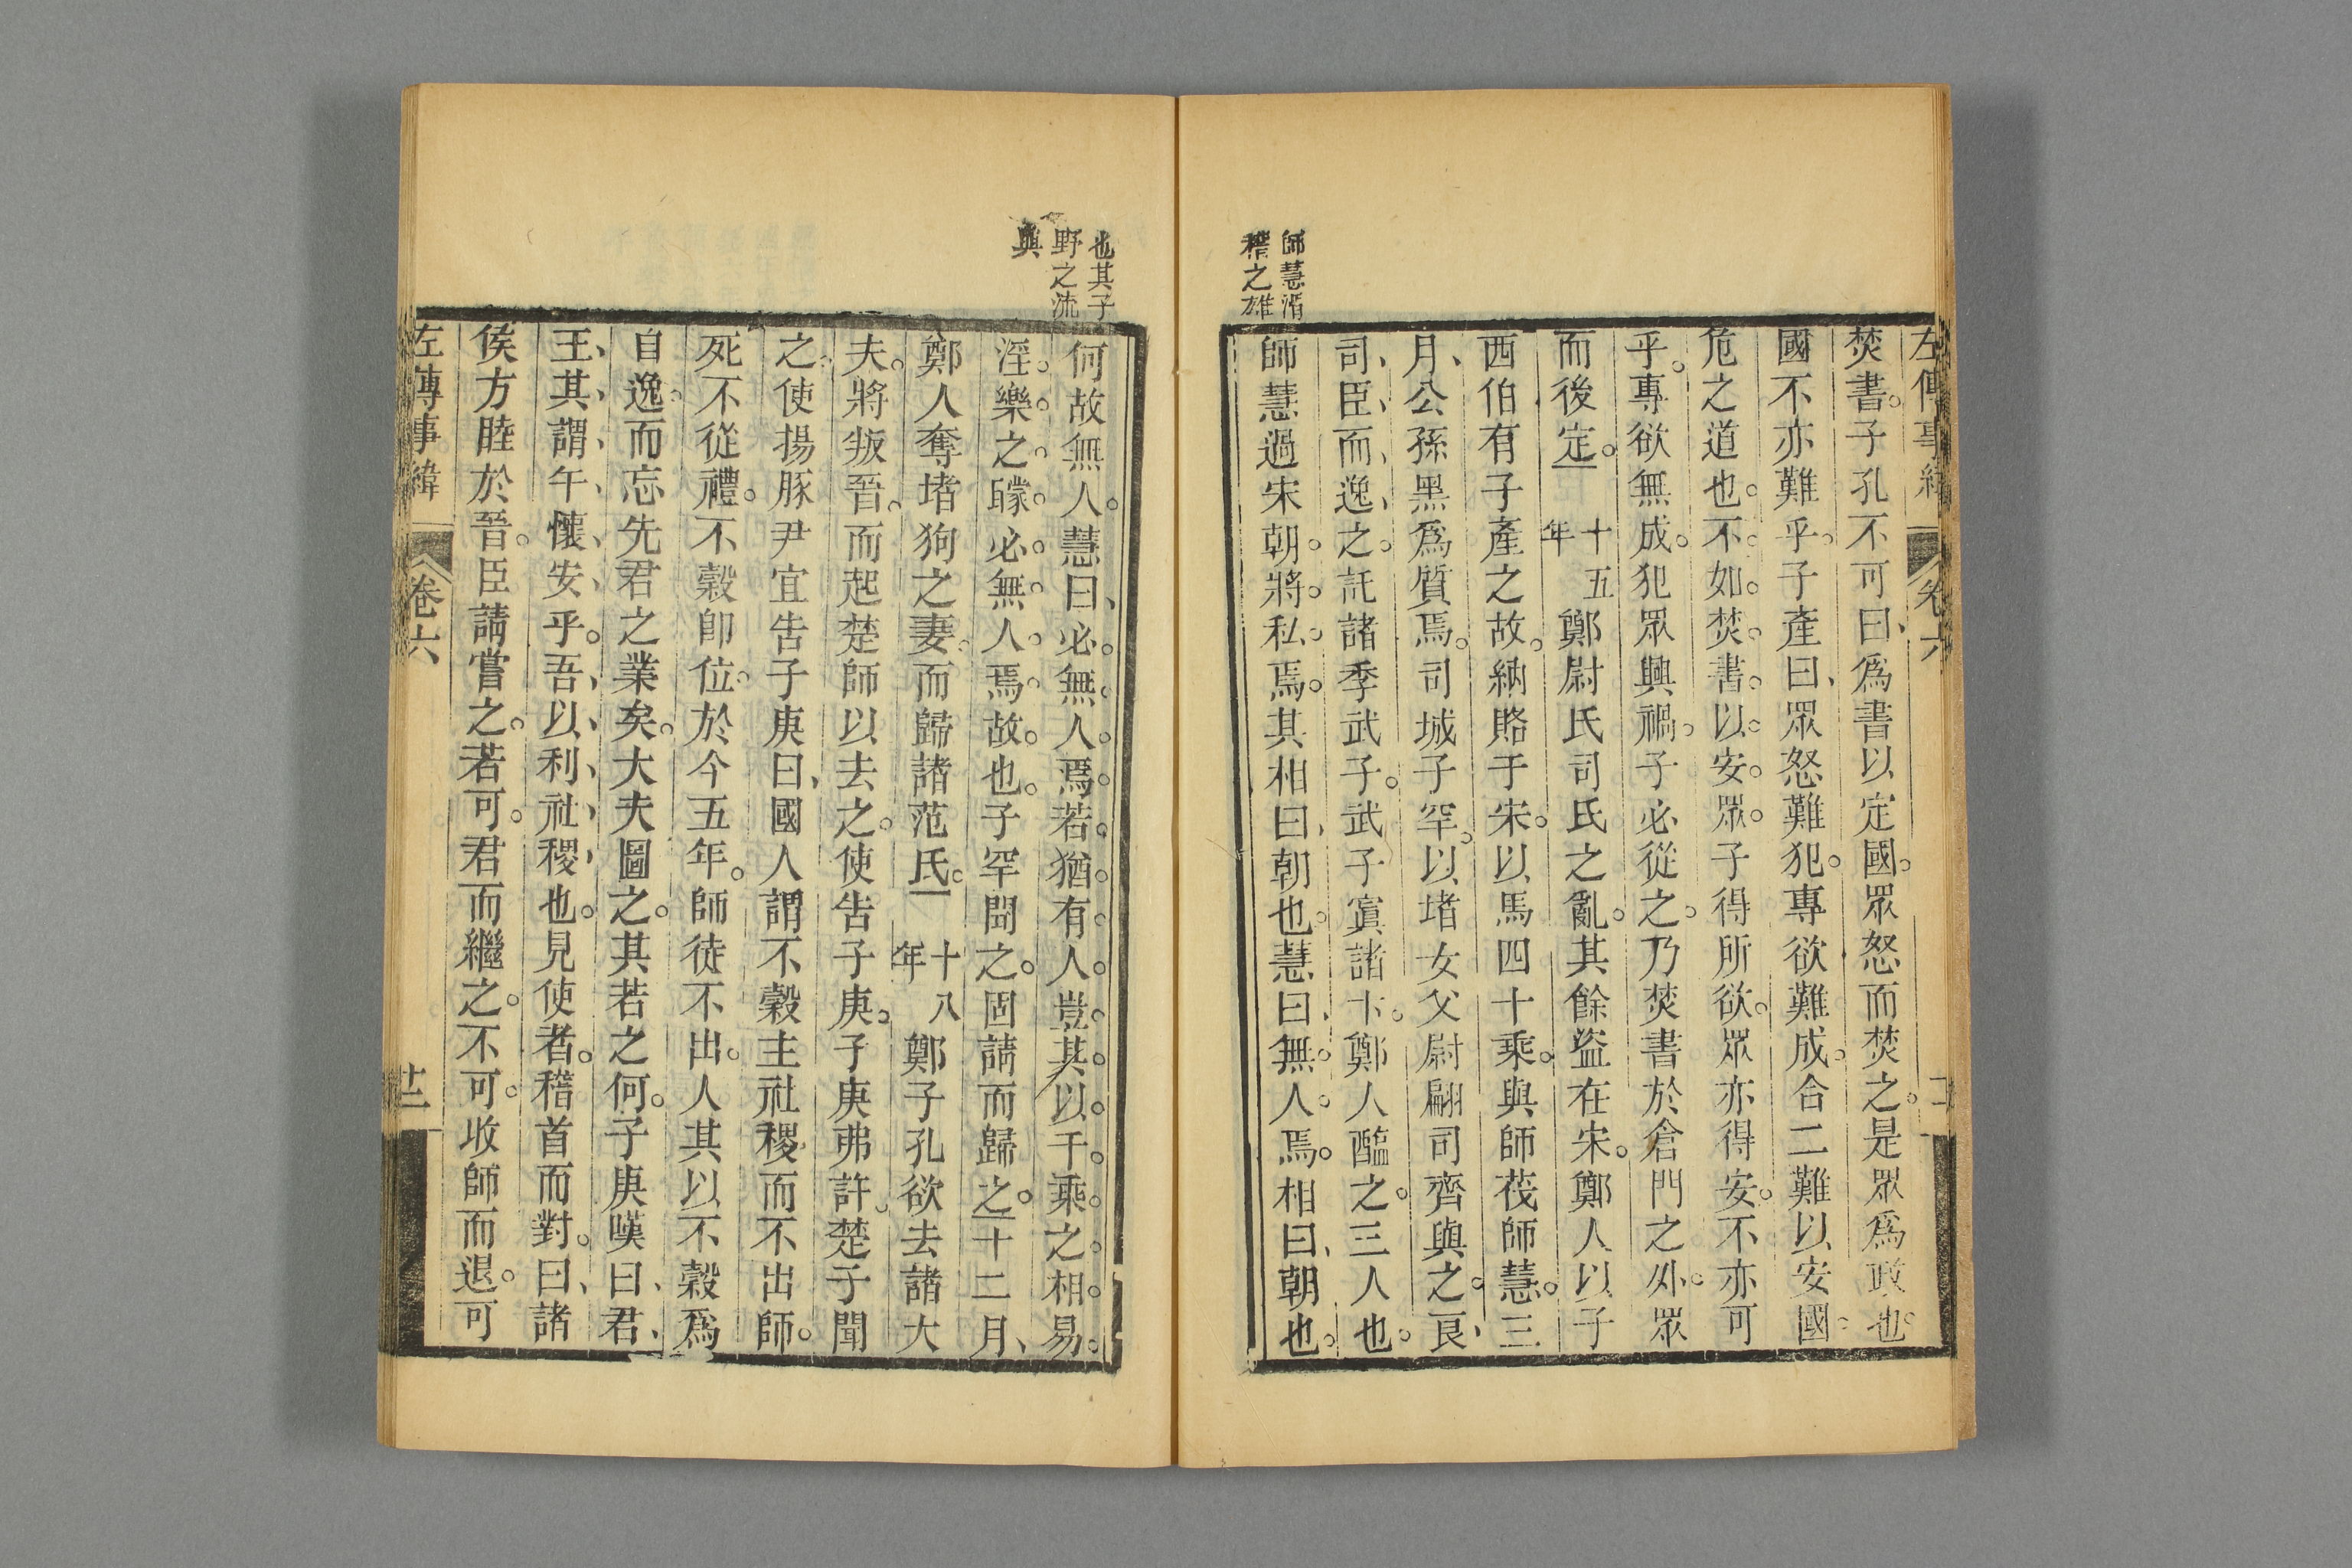 左傳事緯 卷六
焚書。子孔不可曰、爲書以定國。眾怒而焚之。是眾爲政也。
國不亦難乎。子產曰、眾怒難犯。專欲難成。合二難以安國。
危之道也。不如焚書。以安眾。子得所欲。眾亦得安。不亦可
乎。專欲無成。犯眾興禍。子必從之。乃焚書於倉門之外。眾
而後定。 十五年 鄭尉氏司氏之亂。其餘盜在宋。鄭人以子
西伯有子產之故。納賂于宋。以馬四十乘。與師茷師慧。三
月、公孫黑爲質焉。司城子罕。以堵女父尉翩司齊與之。良、
司、臣、而、逸、之。託諸季武子。武子寘諸卞。鄭人醢之。三人也。
師慧滑
稽之雄
師慧過宋朝。將。私。焉。其相曰、朝也。慧曰、無。人。焉。相曰、朝也。
也其子
野之流
與
何故無人。慧曰、必。無。人。焉。若。猶。有。人。豈。其。以。千。乘。之。相。易。
淫。樂。之。矇。必。無。人。焉。故。也。子罕聞之。固請而歸之。十二月、
鄭人奪堵狗之妻。而歸諸范氏。 十八年 鄭子孔欲去諸大
夫。將叛晉。而起楚師以去之。使告子庚。子庚弗許。楚子聞
之。使揚豚尹宜告子庚曰、國人謂不穀主社稷。而不出師。
死不從禮。不穀卽位。於今五年。師徒不出。人其以不穀爲
自逸。而忘先君之業矣。大夫圖之。其若之何。子庚嘆曰、君、
王、其、謂、午、懷、安、乎。吾、以、利、社、稷、也。見使者。稽首而對。曰、諸
侯方睦於晉。臣請嘗之。若可。君而繼之。不可。收師而退。可
左傳事緯 卷六 廿二